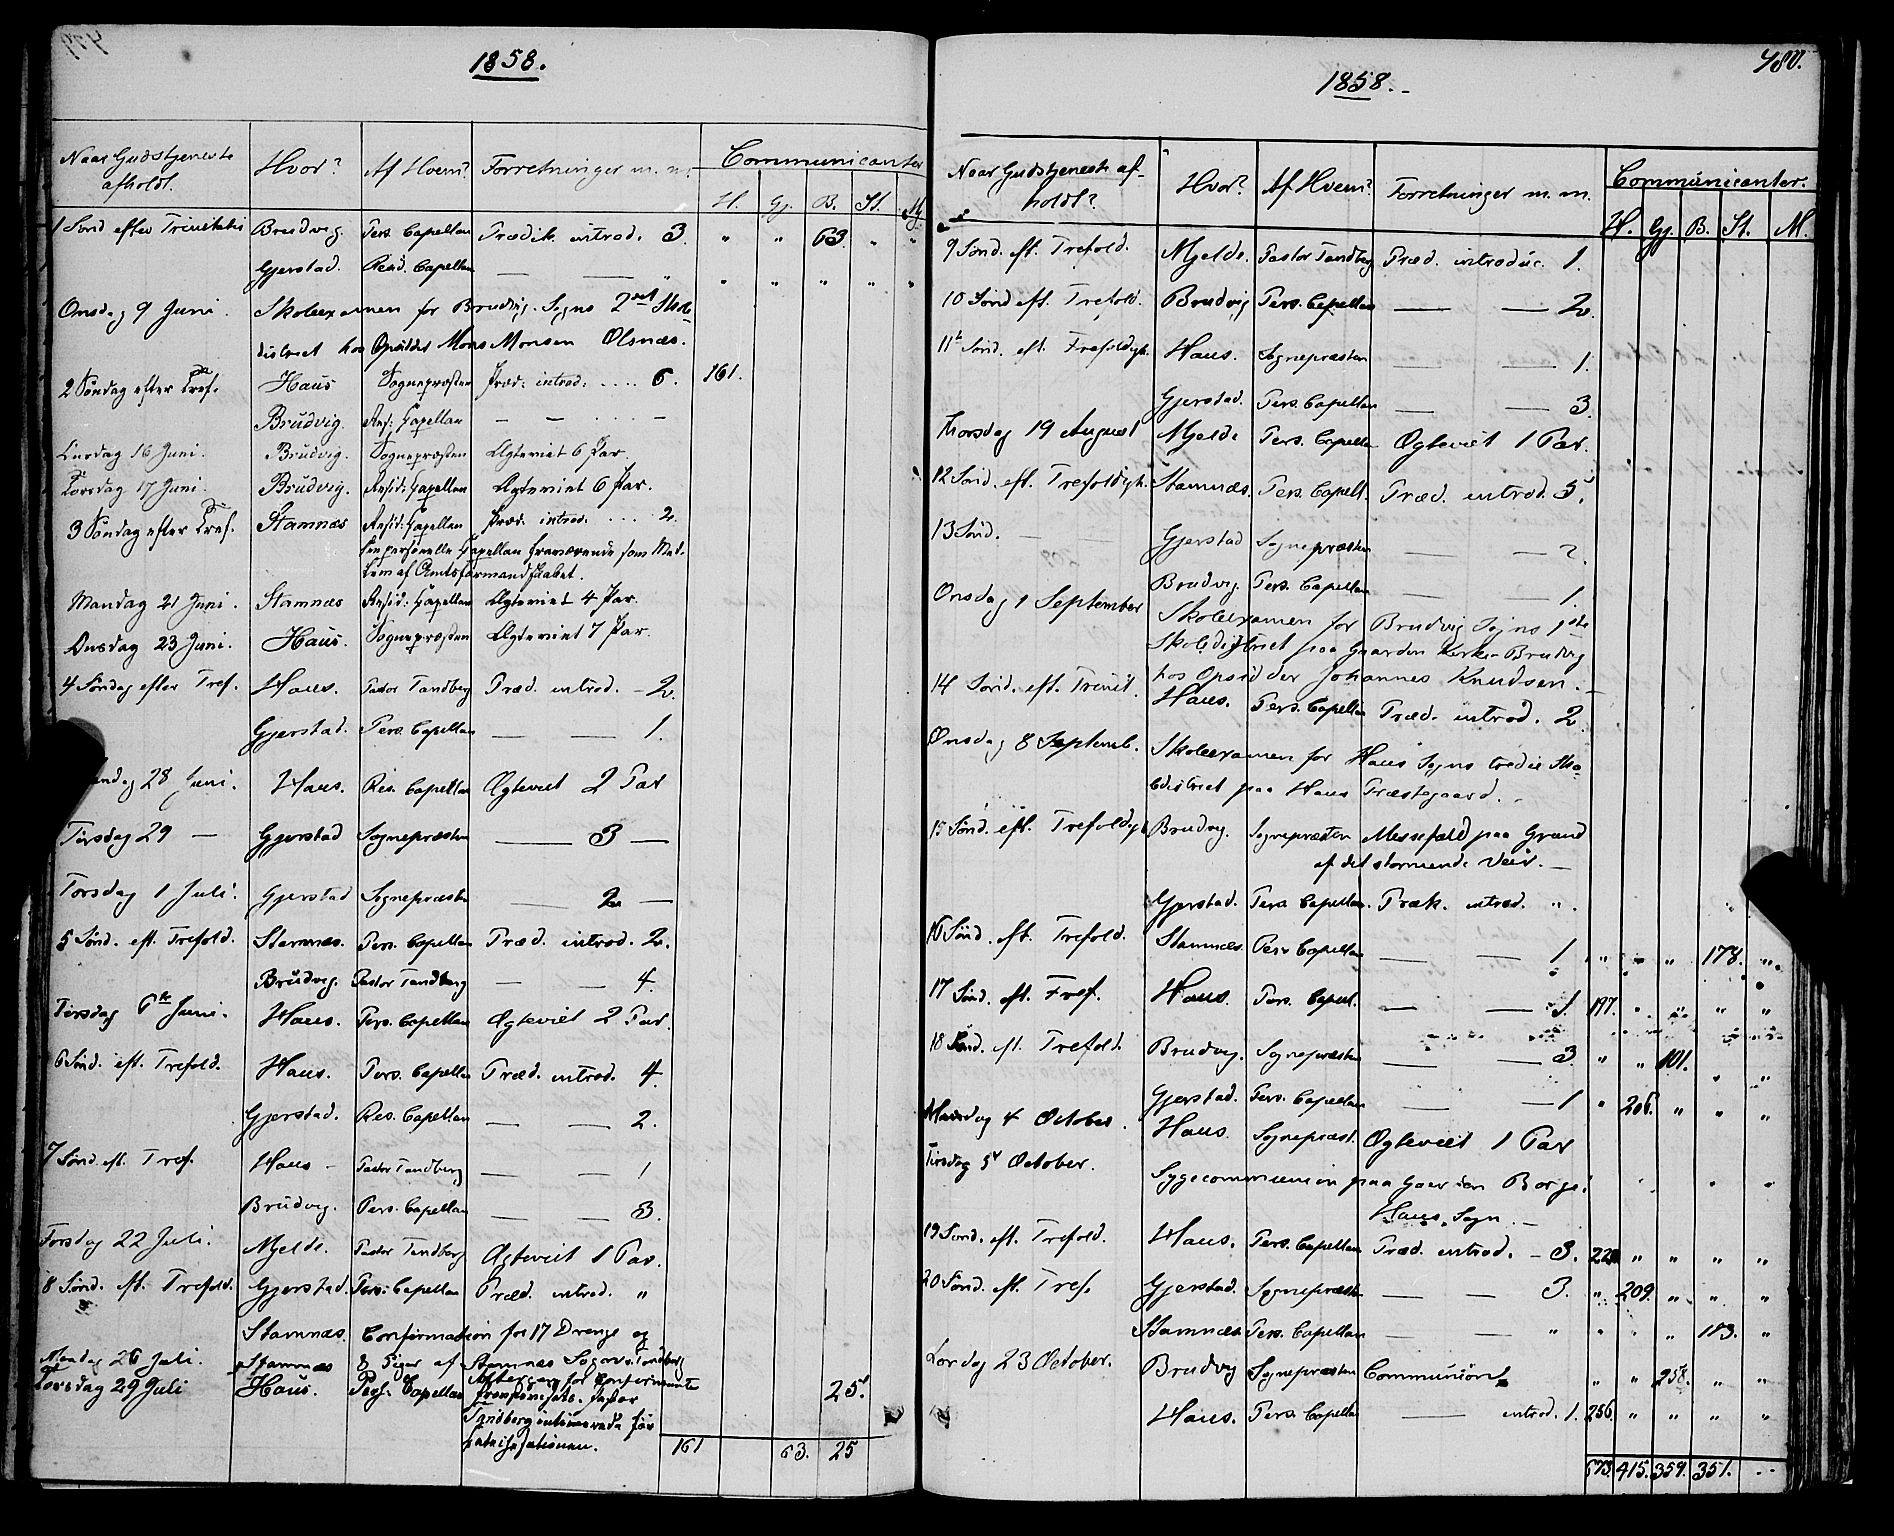 1858.
Naar Gudstjeneste
afholdt.
Hvor? Af Hvem? Forretninger m. m. Communicanter
H. Gj. B. St. M.
1 Sønd efter Trinitatis Brudvig. Pers. Capellan Prædik. introd. 3. " " 63. " "
Gjerstad. Resd. Capellan — — " " " " " "
Onsdag 9 Juni. Skoleexamen for Brudvig Sogns 2det Skole
district hos Opsidder Mons Monsen Olsnæs.
2 Søndag efter Tref. Haus Sognepræsten Præd. introd. .... 6. 161.
Brudvig. Resid. Capellan — — —
Onsdag 16 Juni. Brudvig. Sognepræsten Ægteviet 6 Par.
Torsdag 17 Juni. Brudvig. Resid. Capellan Ægteviet 6 Par.
3 Søndag efter Tref. Stamnæs Resid. Capellan Præd. introd. .... 2.
Den personelle Capellan fraværende som Med-
lem af Amtsformandskabet.
Mandag 21 Juni. Stamnæs Resid. Capellan Ægteviet 4 Par.
Onsdag 23 Juni. Haus. Sognepræsten Ægteviet 7 Par.
4 Søndag efter Tref. Haus. Pastor Tandberg Præd. introd. — 2.
Gjerstad. Pers. Capellan — — 1.
ndag 28 Juni. Haus. Res. Capellan Ægteviet 2 Par
Tirsdag 29 — Gjerstad Sognepræsten — 3 —
Torsdag 1 Juli. Gjerstad Sognepræsten — 2 —
5 Sønd. eft. Trefold. Stamnæs. Pers. Capellan Præd. introd. 2.
Brudvig. Pastor Tandberg — — 4.
Tirsdag 6te Juni. Haus. Pers. Capellan Ægteviet 2 Par.
6 Sønd. eft. Trefold. Haus. Pers. Capellan Præd. introd. 4.
Gjerstad. Res. Capellan — — 2.
7 Sønd. eft. Tref. Haus — Pastor Tandberg — — 1
Brudvig. Pers. Capellan — — 3.
Torsdag 22 Juli. Mjelde. Pastor Tandberg Ægteviet 1 Par.
8 Sønd. eft. Trefold. Gjerstad. Pers. Capellan Præd. introd. "
Stamnæs. Confirmation for 17 Drenge og
Mandag 26 Juli. Stamnæs 8 Piger af Stamnæs Sogn v. Tandberg
Torsdag 29 Juli Haus. Pers. Capellan Altergang for Confirmanter 25.
Pastor
Tandberg
161 63. 25
480.
1858.
Naar Gudstjeneste af-
holdt?
Hvor? Af Hvem? Forretninger m. m. Communicanter.
H. Gj. B. St. M.
9 Sønd. eft. Trefold. Mjelde. Pastor Tandberg Præd. introduc. 1.
10 Sønd eft. Trefold. Brudvig Pers. Capellan — — 2.
11te Sønd. eft. Trefoldigh. Haus. Sognepræsten — — 1.
Gjerstad. Pers. Capellan — — 3.
Thorsdag 19 August Mjelde Pers. Capellan Ægteviet 1 Par.
12 Sønd. eft. Trefoldigh. Stamnæs. Pers. Capell. Præd. introd. 5.
13 Sønd. — — Gjerstad Sognepræsten — — 2.
Brudvig. Pers. Capellan — — 1.
Onsdag 1 September Skoleexamen for Brudvig Sogns 1ste
Skoledistrict paa Gaarden Kirke-Brudvig
hos Opsidder Johannes Knudsen. —
14 Sønd. eft. Trinit. Haus. Pers. Capellan Præd. introd. 2
Onsdag 8 Septemb. Skoleexamen for Haus Sogns tredie Sko-
ledistrict paa Haus Præstegaard. —
15 Sønd. eft. Trefoldigh. Brudvig. Sognepræsten Messefald paa Grund
af det stormende Veir. —
Gjerstad. Pers Capellan. Præk. introd. ".
16 Sønd. eft. Trefold. Stamnæs. Pers Capellan — — 1 " " " 178. "
17 Sønd. eft. Tref. Haus. Pers. Capell. — — 1. 197. " " " "
18 Sønd. eft. Trefold. Brudvig. Sognepræsten — — 3. " " 101. " "
Gjerstad. Pers. Capellan — — 1 " 206. " " "
Mandag 4 October. Haus. Sognepræst. Ægteviet 1 Par
Tirsdag 5t October. Sygecommunion paa Gaarden Borge
Haus Sogn. —
19 Sønd. eft. Trefold. Haus. Pers. Capellan Præd. introd. — 3. 220 " " " "
20 Sønd. eft. Tref. Gjerstad. Sognepræsten — — 3. " 209. " " "
Stamnæs Pers. Capellan — — " " " " 183. "
Lørdag 23 October. Brudvig Sognepræsten Communion " " 258. " "
Haus. Pers. Capellan — introd. 1. 256. " " " "
673. 415. 359. 351. ..